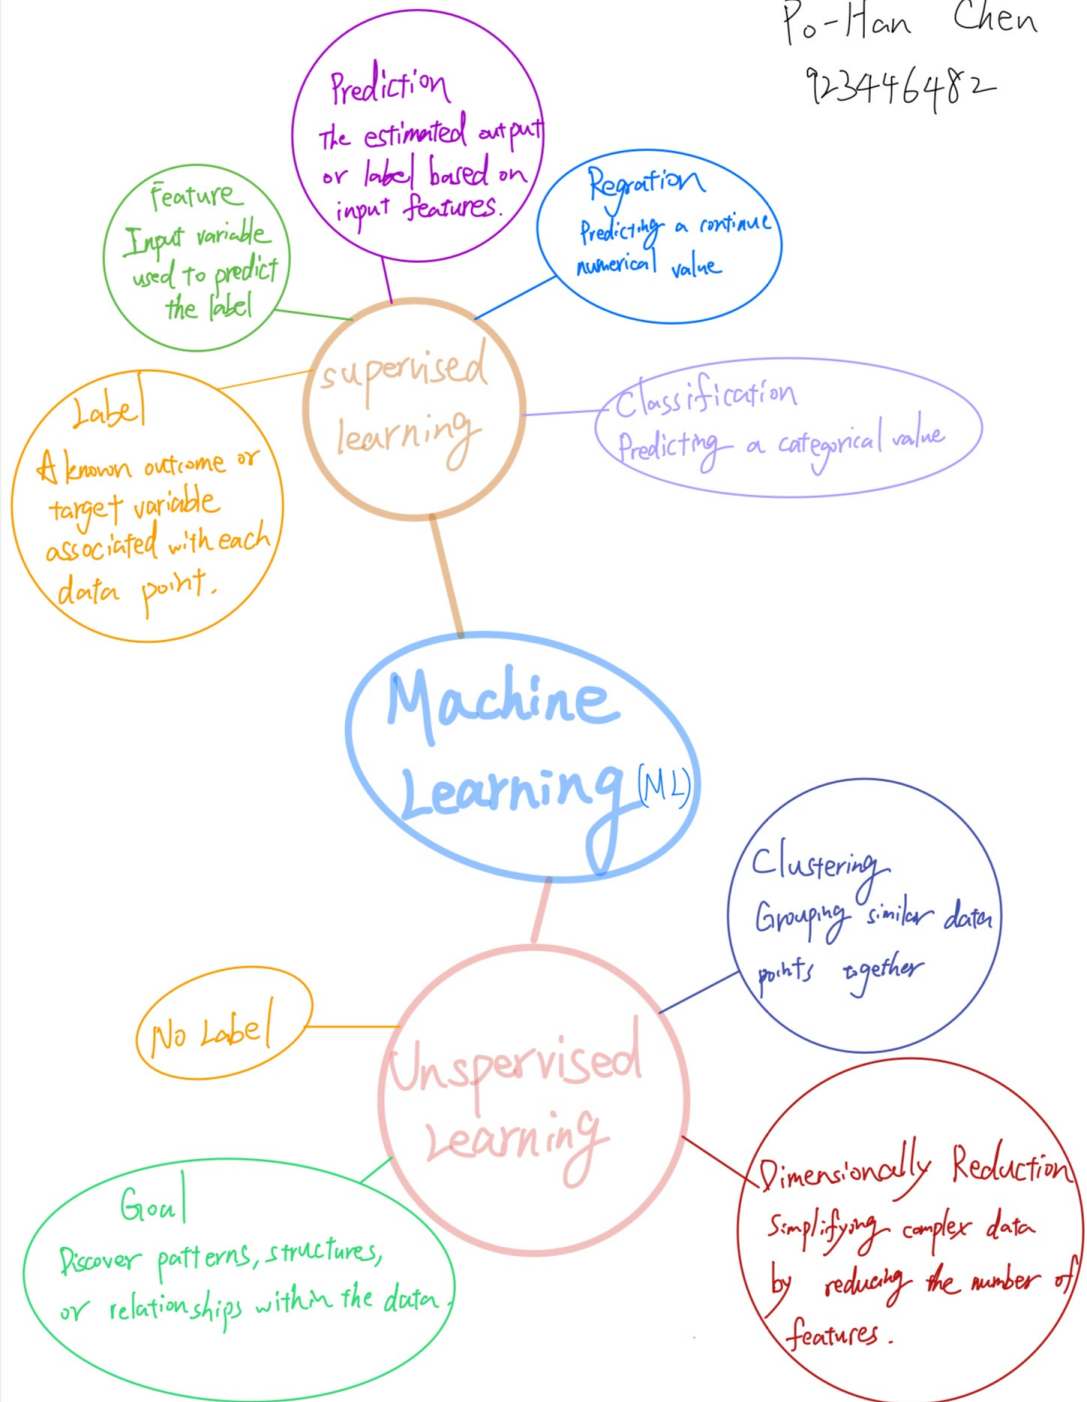 Po-Han Chen
923446482
Prediction
The estimated output
or label based on
input features.
Regration
Predicting a continue
numerical value
Feature
Input variable
used to predict
the label
supervised
learning
Classification
Predicting a categorical value
Label
A known outcome or
target variable
associated with each
data point.
Machine
Learning (ML)
Clustering
Grouping similar data
points together
No Label
Unspervised
Learning
Dimensionally Reduction
Simplifying complex data
by reducing the number of
features.
Goal
Discover patterns, structures,
or relationships within the data.